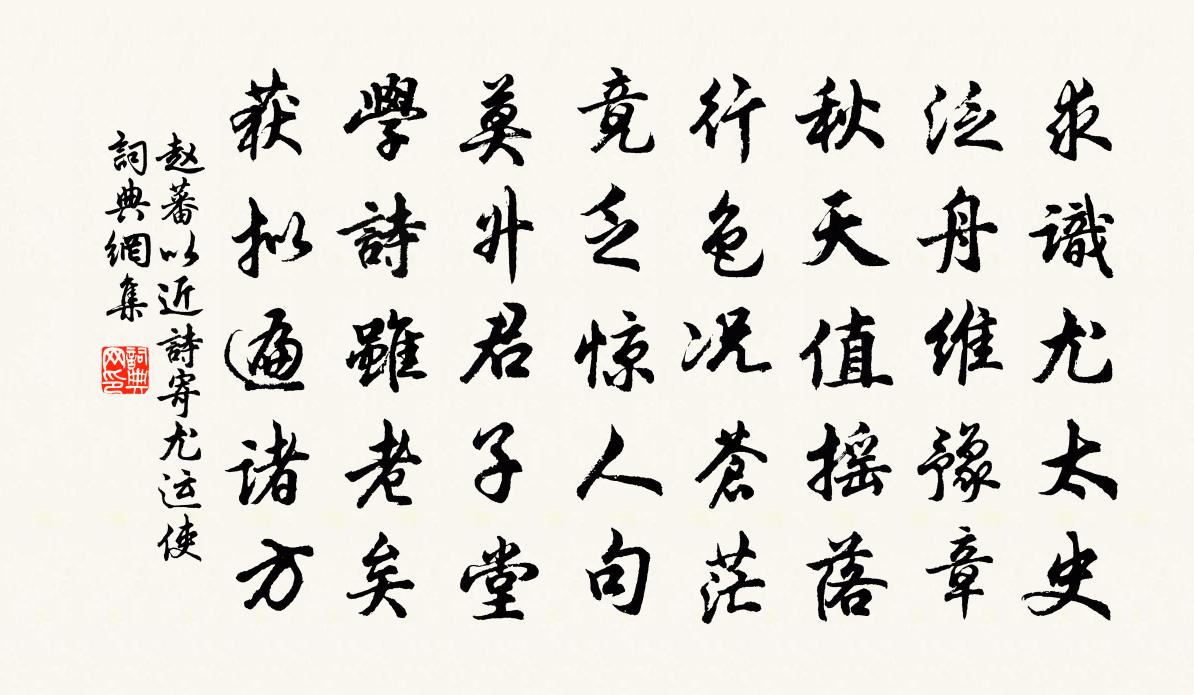 求識尤太史
泛舟維豫章
秋天值摇落
行色况蒼茫
竟乏惊人句
莫升君子堂
學詩雖老矣
获拟遍诸方
赵蕃以近詩寄尤运使
詞典網集
詞典
网印